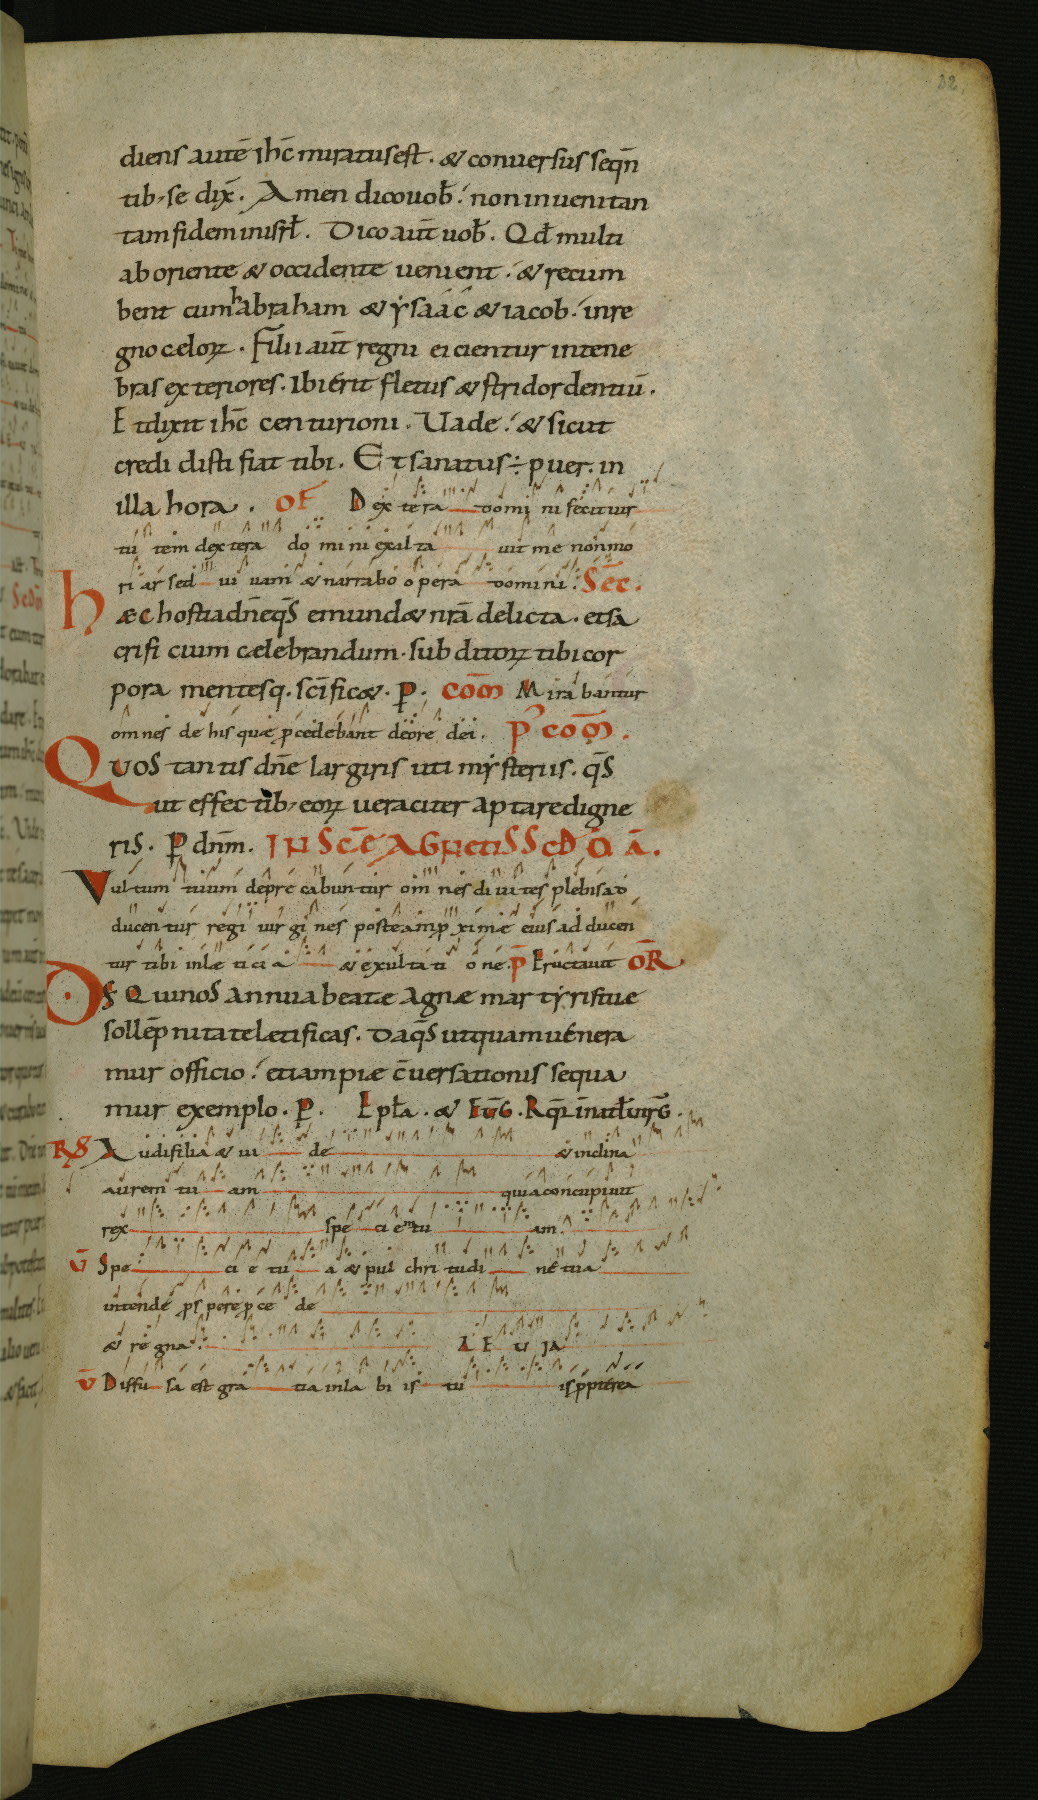 32
diens autē ihc̄ miratus est. & conuersus seqn̄
tib; se dix̄. Amen dico uob̄. non inueni tan
tam fidem in isrl̄. Dico aut̄ uob̄. Qd̄ multi
ab oriente & occidente uenient. & recum
bent cum habraham & ysaác & iacob. in re
gno cęloꝝ. Filii aut̄ regni eicientur in tene
bras exteriores. Ibi erit fletus & stridor dentiū.
Et dixit ihc̄ centurioni. Uade. & sicut
credidisti fiat tibi. Et sanatus ÷ puer. in
illa hora. OF Dextera domini fecit uir
tutem dextera domini exalta uit me non mo
riar sed uiuam & narrabo opera domini. SEC̄.
Hæc hostia dn̄e qs̄ emund& nrā delicta. et sa
crificium cælebrandum. subditoꝝ tibi cor
pora mentesq. scīfic&. P̄. COM̄ Mirabantur
omnes de his quæ p̄cedebant de ore dei. P̄ COM̄.
Quos tantis dn̄e largiris uti mysteriis. qs̄
ut effectib; eoꝝ ueraciter aptare digne
ris. P̄ dnm̄. IN SCE AGNETIS SCD̄O. A.
Vultum tuum deprecabuntur omnes diuites plebis ad
ducentur regi uirgines postea p̄ximæ eius adducen
tur tibi in læticia & exultatione. P̄ Eructauit OR̄
Ds̄ Qui nos annua beatæ Agnæ martyris tuæ
sollēpnitate letificas. Da qs̄ ut quam uenera
mur officio. etiam piæ c̄uersationis sequa
mur exemplo. P̄. Epl̄a. & Eūg. Rq̄r in nat̄ uirḡ.
RS Audi filia & ui de & inclina
aurem tu am quia concupiuit
rex speciem tu am.
V̄ Spe cie tu a & pulchritudi ne tua
intende ꝓspere ꝓcede
& regna. A E U IA
V̄ Diffusa est gra tia in labiis tu is ꝓpterea